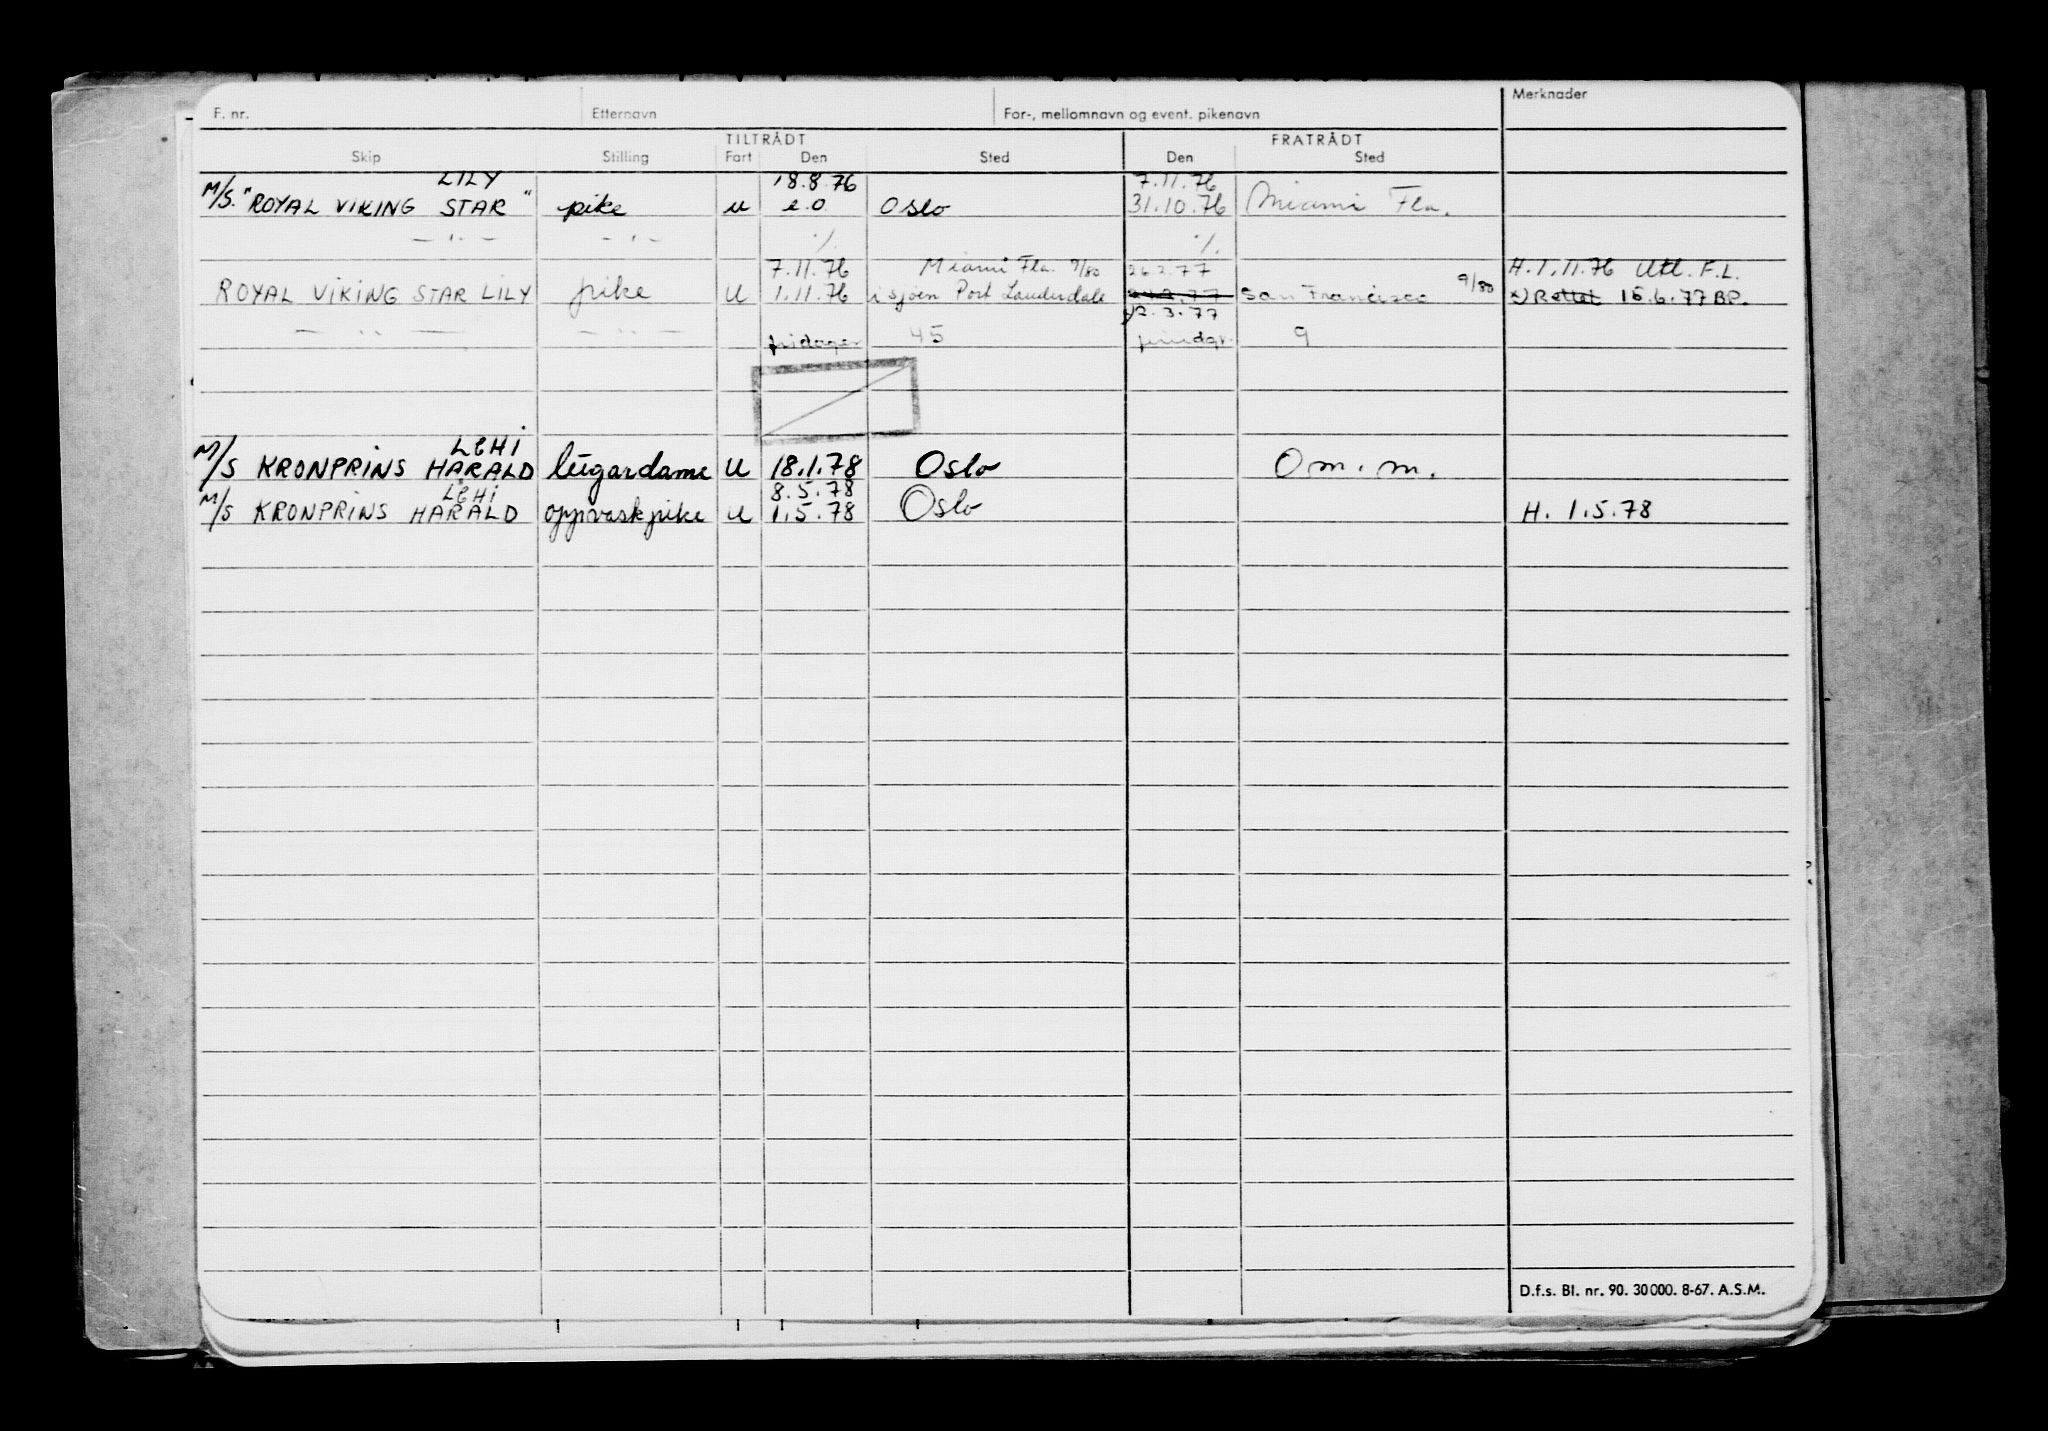 F. nr. Etternavn For-, mellomnavn og event. pikenavn Merknader
TILTRÅDT FRATRÅDT
Skip Stilling Fart Den Sted Den Sted
LILY 18.8.76 7.11.76
M/S. "ROYAL VIKING STAR" pike u e.o. Oslo 31.10.76 Miami Fla.
— " — — " — %. %.
7.11.76 Miami Fla. 9/80 26.2.77 H. 1.11.76 Utl. F.L.
ROYAL VIKING STAR LILY pike U 1.11.76 i sjøen Port Lauderdale San Francisco 9/80 x) Rettet 15.6.77 BP.
x) 2.3.77
— " — — " — fridager 45 9
LEHI
M/S KRONPRINS HARALD lugardame U 18.1.78 Oslo O m. m.
LEHI 8.5.78
M/S KRONPRINS HARALD oppvaskpike U 1.5.78 Oslo H. 1.5.78
D.f.s. Bl. nr. 90. 30000. 8-67. A.S.M.